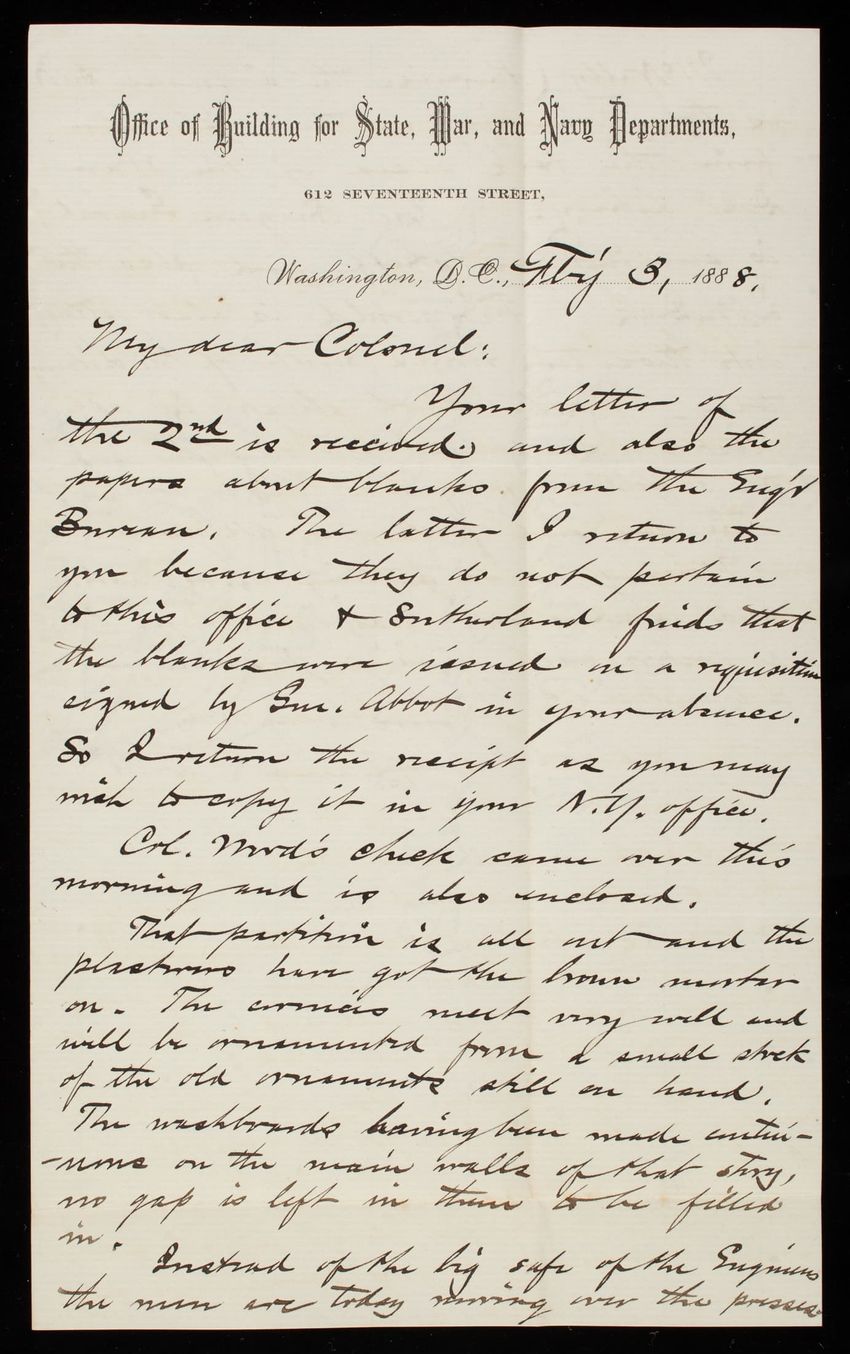 Office of Building for State, War, and Navy Departments,
612 SEVENTEENTH STREET,
Washington, D. C., Feb'y 3, 1888.
My dear Colonel:
Your letter of
the 2nd is received. and also the
papers about blanks from the Eng'r
Bureau. The latter I return to
you because they do not pertain
to this office & Sutherland finds that
the blanks were issued on a requisition
signed by Gen. Abbot in your absence.
So I return the receipt as you may
wish to copy it in your N.Y. office.
Col. Wood's check came over this
morning and is also enclosed.
That partition is all out and the
plasterers have got the brown mortar
on. The cornices meet very well and
will be ornamented from a small stock
of the old ornaments still on hand.
The washboards having been made contin-
-uous on the main walls of that story,
no gap is left in them to be filled
in.
Instead of the big safe of the Engineers
the men are today moving over the presses